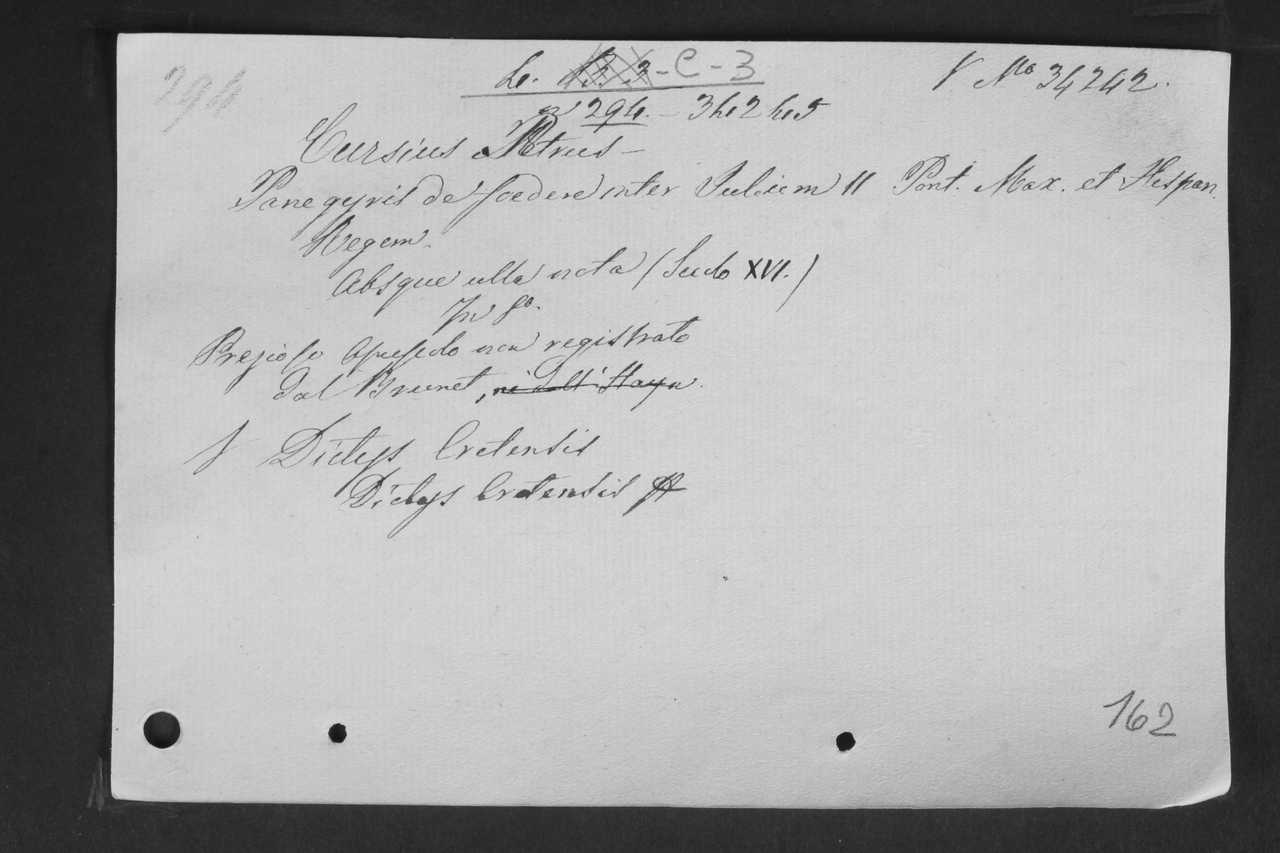 294
L. 13 3 - C - 3
V No 34242.
n 294. - 34245
Cursius Petrus -
Panegyris de foedere inter Julium II Pont. Max. et Hispan.
Regem.
Absque ulla nota (Seculo XVI.)
In 8o.
Prezioso opuscolo non registrato
dal Brunet, ni dall' Hayn.
Dictys Cretensis
Dictys Cretensis
162